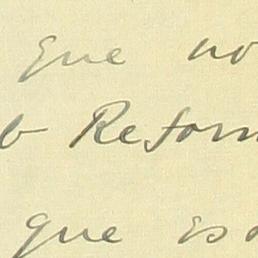 que no
b Reform
que es